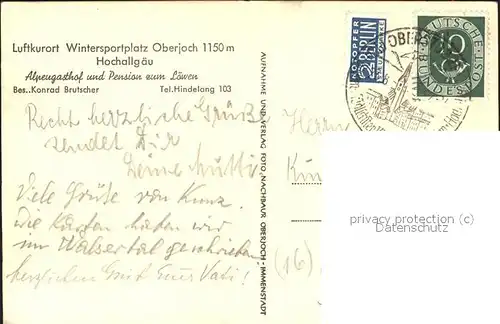 Luftkurort Wintersportplatz Oberjoch 1150 m
Hochallgäu
Alpengasthof und Pension zum Löwen
Bes. Konrad Brutscher Tel. Hindelang 103
Recht herzliche Grüße
sendet Dir
Deine Mutti
Viele Grüße von Kunz.
Die Karten haben wir
im Walsertal geschrieben,
herzlichen Gruß Euer Vati!
AUFNAHME UND VERLAG FOTO. NACHBAUR OBERJOCH - IMMENSTADT
Herrn
(16)
NOTOPFER
2 BERLIN
STEUERMARKE
OBERST
DEUTSCHE POST
BUNDESPOST
10
privacy protection (c)
Datenschutz